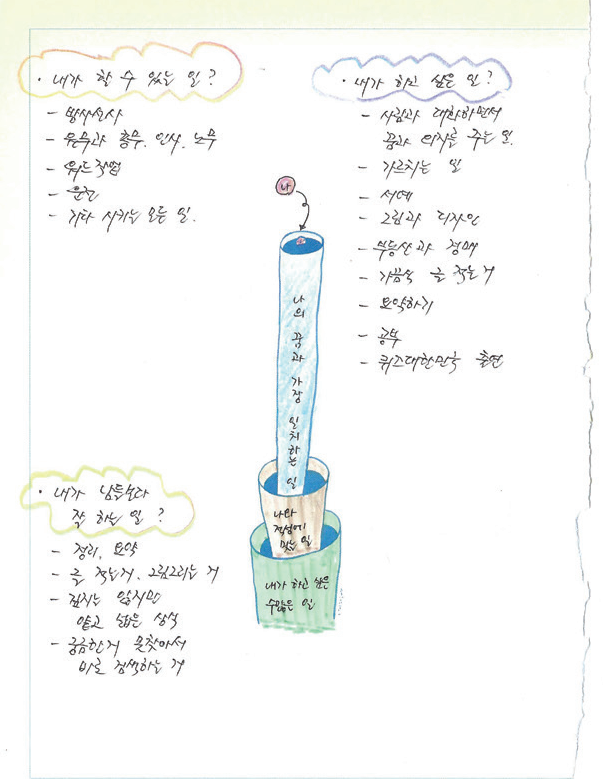 · 내가 할 수 있는 일?
- 방사선사
- 원무과 총무, 인사, 노무
- 워드작업
- 운전
- 기타 시키는 모든 일.
· 내가 하고 싶은 일?
- 사람과 대화하면서
꿈과 의지를 주는 일.
- 가르치는 일
- 서예
- 그림과 디자인
- 부동산과 경매
- 가끔씩 글 적는 거
- 요약하기
- 공부
- 퀴즈대한민국 출연
나
나의 꿈과 가장 일치하는 일
나와
적성에
맞는 일
내가 하고 싶은
수많은 일
· 내가 남들보다
잘 하는 일?
- 정리, 요약
- 글 적는거, 그림그리는 거
- 깊지는 않지만
얕고 넓은 상식
- 궁금한거 못참아서
바로 검색하는 거